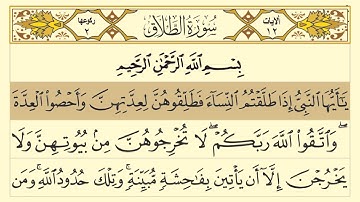 الآيات ١٢ سُورَةُ الطَّلَاقِ ركوعها ٢
بِسْمِ ٱللَّهِ ٱلرَّحْمَٰنِ ٱلرَّحِيمِ
يَٰٓأَيُّهَا ٱلنَّبِىُّ إِذَا طَلَّقْتُمُ ٱلنِّسَآءَ فَطَلِّقُوهُنَّ لِعِدَّتِهِنَّ وَأَحْصُوا۟ ٱلْعِدَّةَ
وَٱتَّقُوا۟ ٱللَّهَ رَبَّكُمْ ۖ لَا تُخْرِجُوهُنَّ مِنۢ بُيُوتِهِنَّ وَلَا
يَخْرُجْنَ إِلَّآ أَن يَأْتِينَ بِفَٰحِشَةٍ مُّبَيِّنَةٍ ۚ وَتِلْكَ حُدُودُ ٱللَّهِ ۚ وَمَن